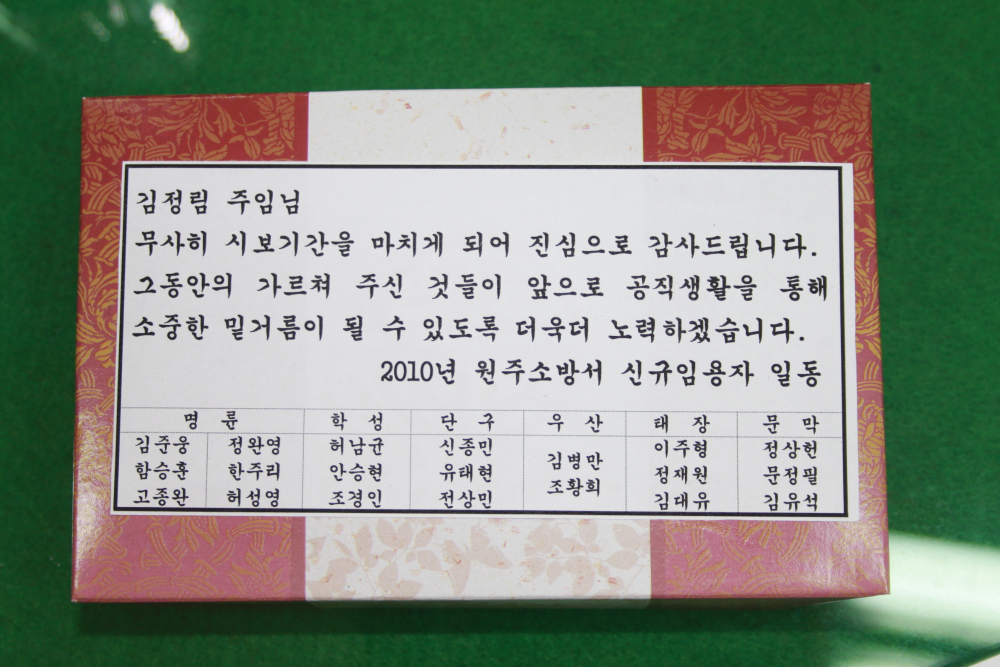 김정림 주임님
무사히 시보기간을 마치게 되어 진심으로 감사드립니다.
그동안의 가르쳐 주신 것들이 앞으로 공직생활을 통해
소중한 밑거름이 될 수 있도록 더욱더 노력하겠습니다.
2010년 원주소방서 신규임용자 일동
명 륜 학 성 단 구 우 산 태 장 문 막
김준웅 정완영 허남균 신종민 김병만 이주형 정상헌
함승훈 한주리 안승현 유태현 조황희 정재원 문정필
고종완 허성영 조경인 전상민 김대유 김유석